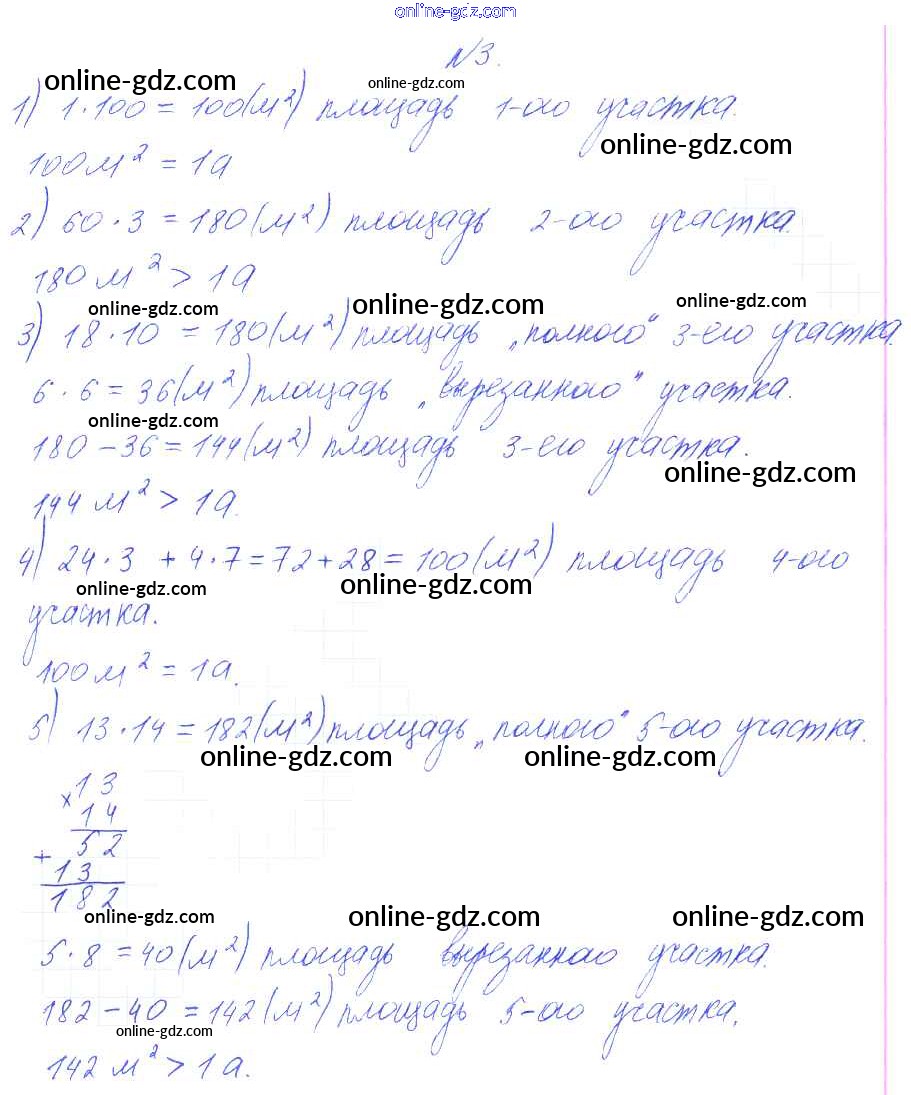 online-gdz.com
№3.
online-gdz.com online-gdz.com
1) 1·100 = 100(м²) площадь 1-ого участка.
online-gdz.com
100м² = 1а
2) 60·3 = 180(м²) площадь 2-ого участка.
180м² > 1а
online-gdz.com online-gdz.com online-gdz.com
3) 18·10 = 180(м²) площадь „полного“ 3-его участка.
6·6 = 36(м²) площадь „вырезанного" участка.
online-gdz.com
180 - 36 = 144(м²) площадь 3-его участка.
online-gdz.com
144 м² > 1а.
4) 24·3 + 4·7 = 72 + 28 = 100(м²) площадь 4-ого
online-gdz.com online-gdz.com
участка.
100м² = 1а.
5) 13·14 = 182(м²) площадь „полного" 5-ого участка.
online-gdz.com online-gdz.com
× 13
14
+ 52
13
182
online-gdz.com online-gdz.com online-gdz.com
5·8 = 40(м²) площадь вырезанного участка.
182 - 40 = 142(м²) площадь 5-ого участка.
online-gdz.com
142 м² > 1а.